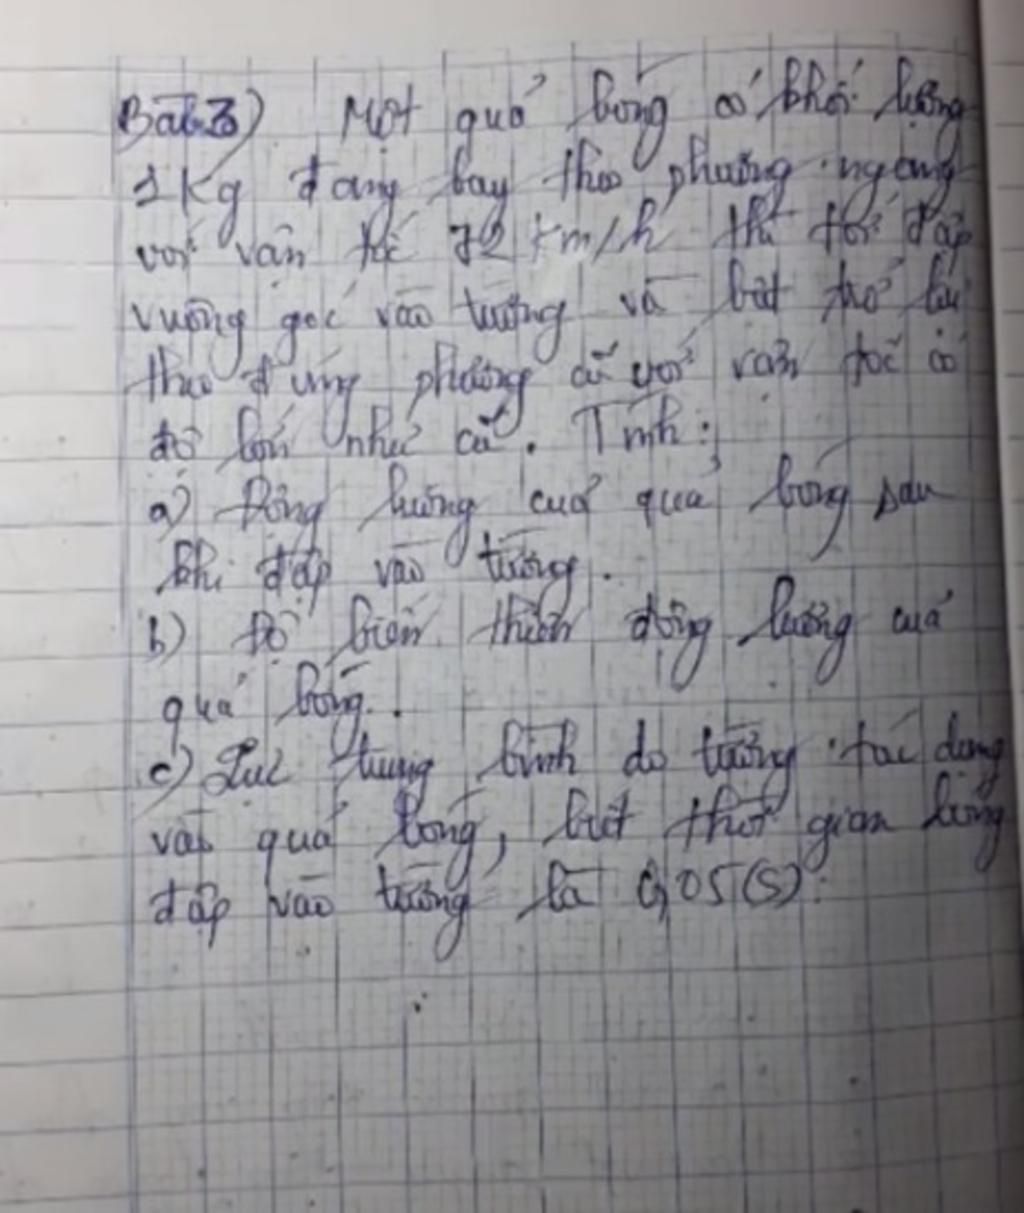 Bài 3) Một quả bóng có khối lượng
1kg đang bay theo phương ngang
với vận tốc 72 km/h thì tới đập
vuông góc vào tường và bật trở lại
theo đúng phương cũ với vận tốc có
độ lớn như cũ. Tính:
a) Động lượng của quả bóng sau
khi đập vào tường.
b) Độ biến thiên động lượng của
quả bóng.
c) Lực trung bình do tường tác dụng
vào quả bóng, biết thời gian bóng
đập vào tường là 0,05(s).